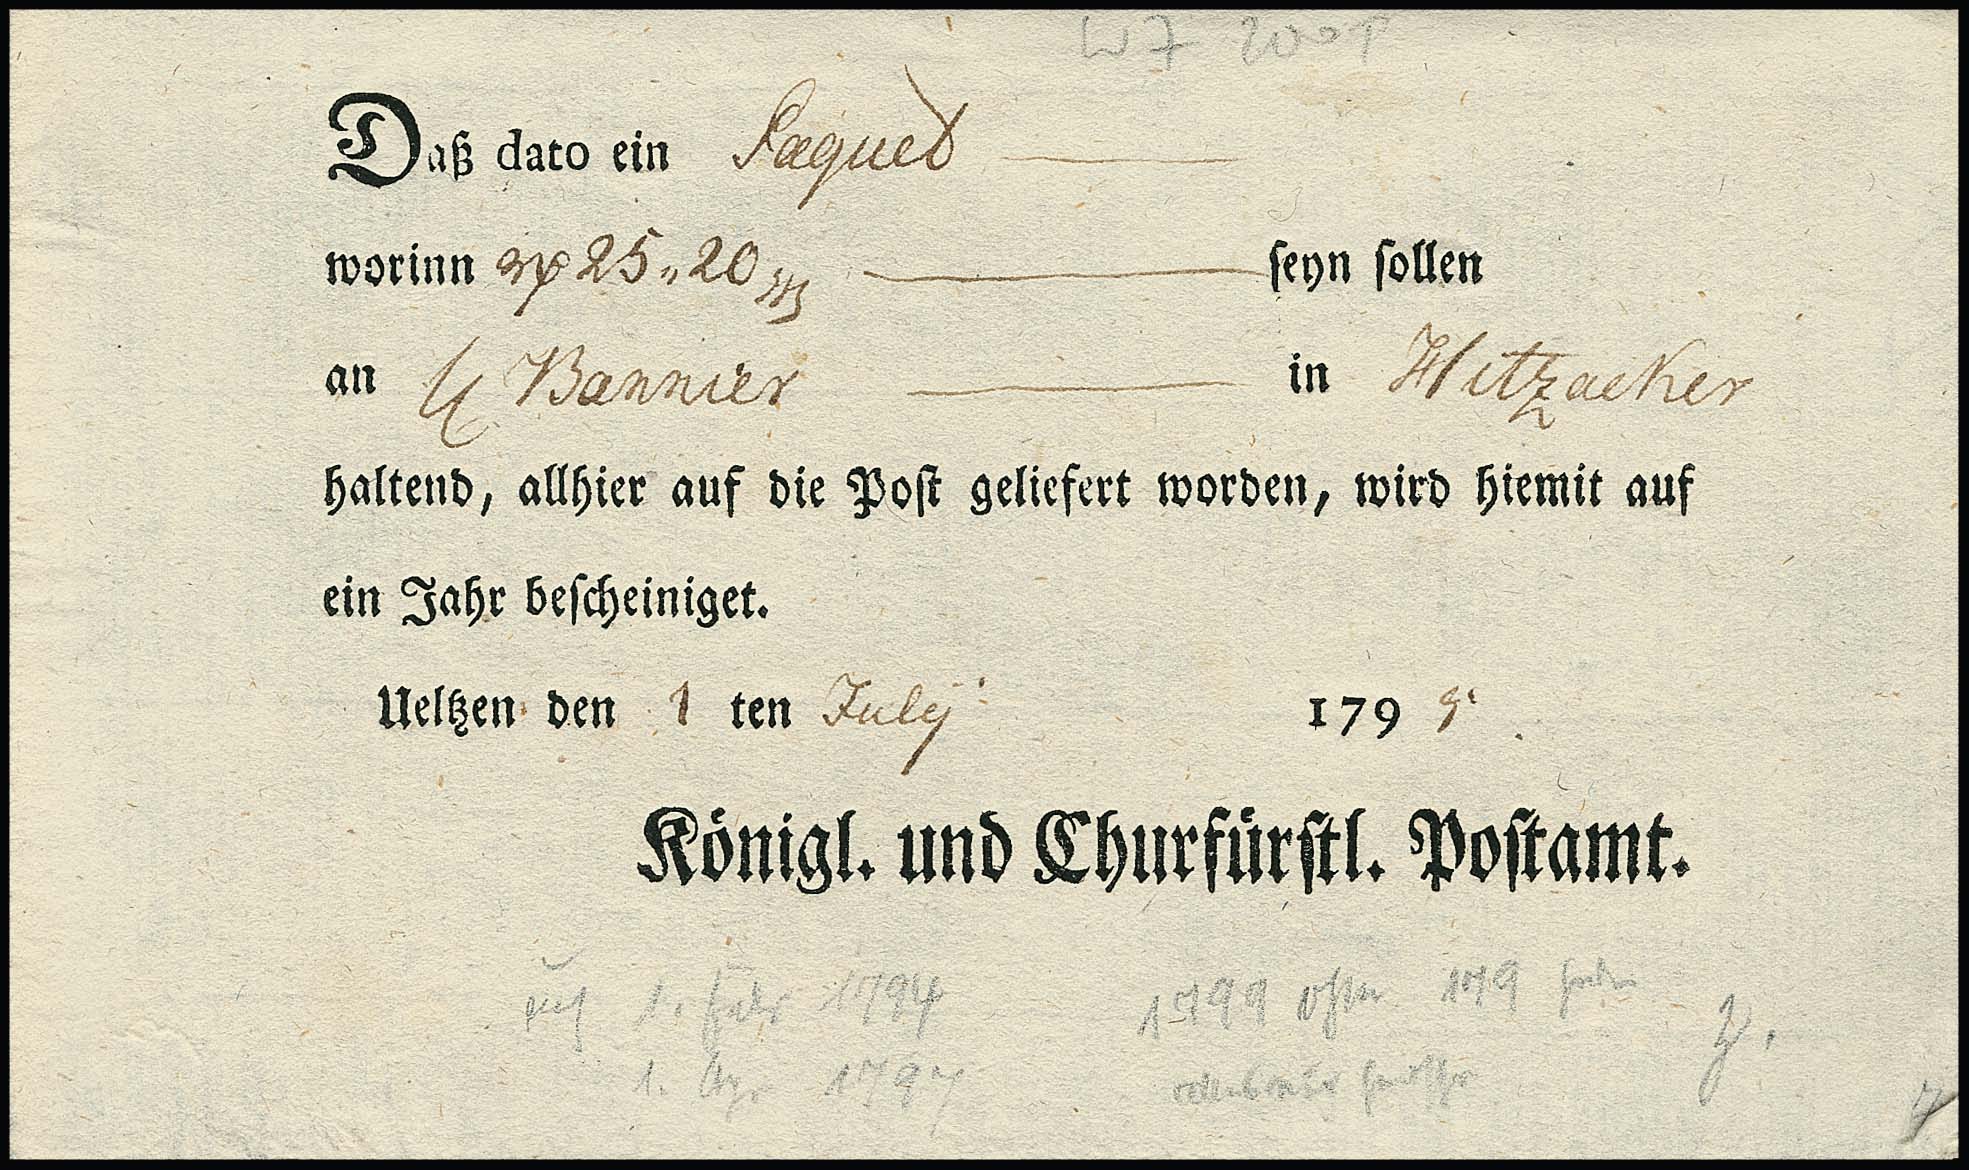 Daß dato ein Paquet
worinn 25 „ 20 seyn sollen
an Bannier in Hitzacker
haltend, allhier auf die Post geliefert worden, wird hiemit auf
ein Jahr bescheiniget.
Ueltzen den 1 ten July 179 9.
Königl. und Churfürstl. Postamt.
1. 1794 1799 179
1. 1797